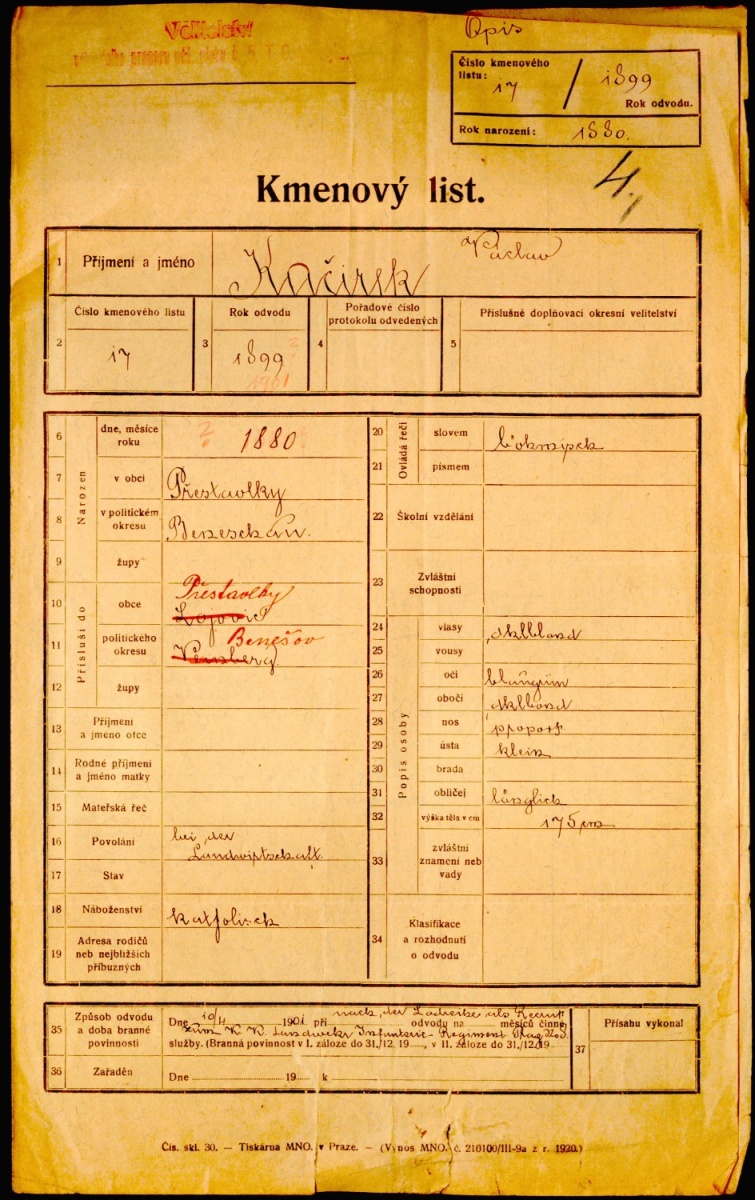 Velitelství
Opis
Číslo kmenového
listu:
17 / 1899
Rok odvodu.
Rok narození: 1880.
4.
Kmenový list.
1 Příjmení a jméno Kačirek Václav
2 Číslo kmenového listu 17
3 Rok odvodu 1899 ?
1901
4 Pořadové číslo
protokolu odvedených
5 Příslušné doplňovací okresní velitelství
Narozen
6 dne, měsíce
roku ? 1880
7 v obci Přestavlky
8 v politickém
okresu Beneschau.
9 župy
Přísluší do
10 obce Přestavlky
11 politického
okresu Benešov
12 župy
13 Příjmení
a jméno otce
14 Rodné příjmení
a jméno matky
15 Mateřská řeč
16 Povolání bei der
Landwirtschaft
17 Stav
18 Náboženství katholisch
19 Adresa rodičů
neb nejbližších
příbuzných
Ovládá řeči
20 slovem böhmisch
21 písmem
22 Školní vzdělání
23 Zvláštní
schopnosti
Popis osoby
24 vlasy dklblond
25 vousy
26 oči blaugrün
27 obočí dklblond
28 nos proport
29 ústa klein
30 brada
31 obličej länglich
32 výška těla v cm 175 cm
33 zvláštní
znamení neb
vady
34 Klasifikace
a rozhodnutí
o odvodu
35 Způsob odvodu
a doba branné
povinnosti
nach der
Dne 10/4 1901 při odvodu na měsíců činné
zum K. K. Landwehr Infanterie-Regiment Prag No 8.
služby. (Branná povinnost v I. záloze do 31./12. 19 , v II. záloze do 31./12. 19
36 Zařaděn Dne 19 k
37 Přísahu vykonal
Čís. skl. 30. — Tiskárna MNO. v Praze. — (Výnos MNO. č. 210100/III-9a z r. 1920.)